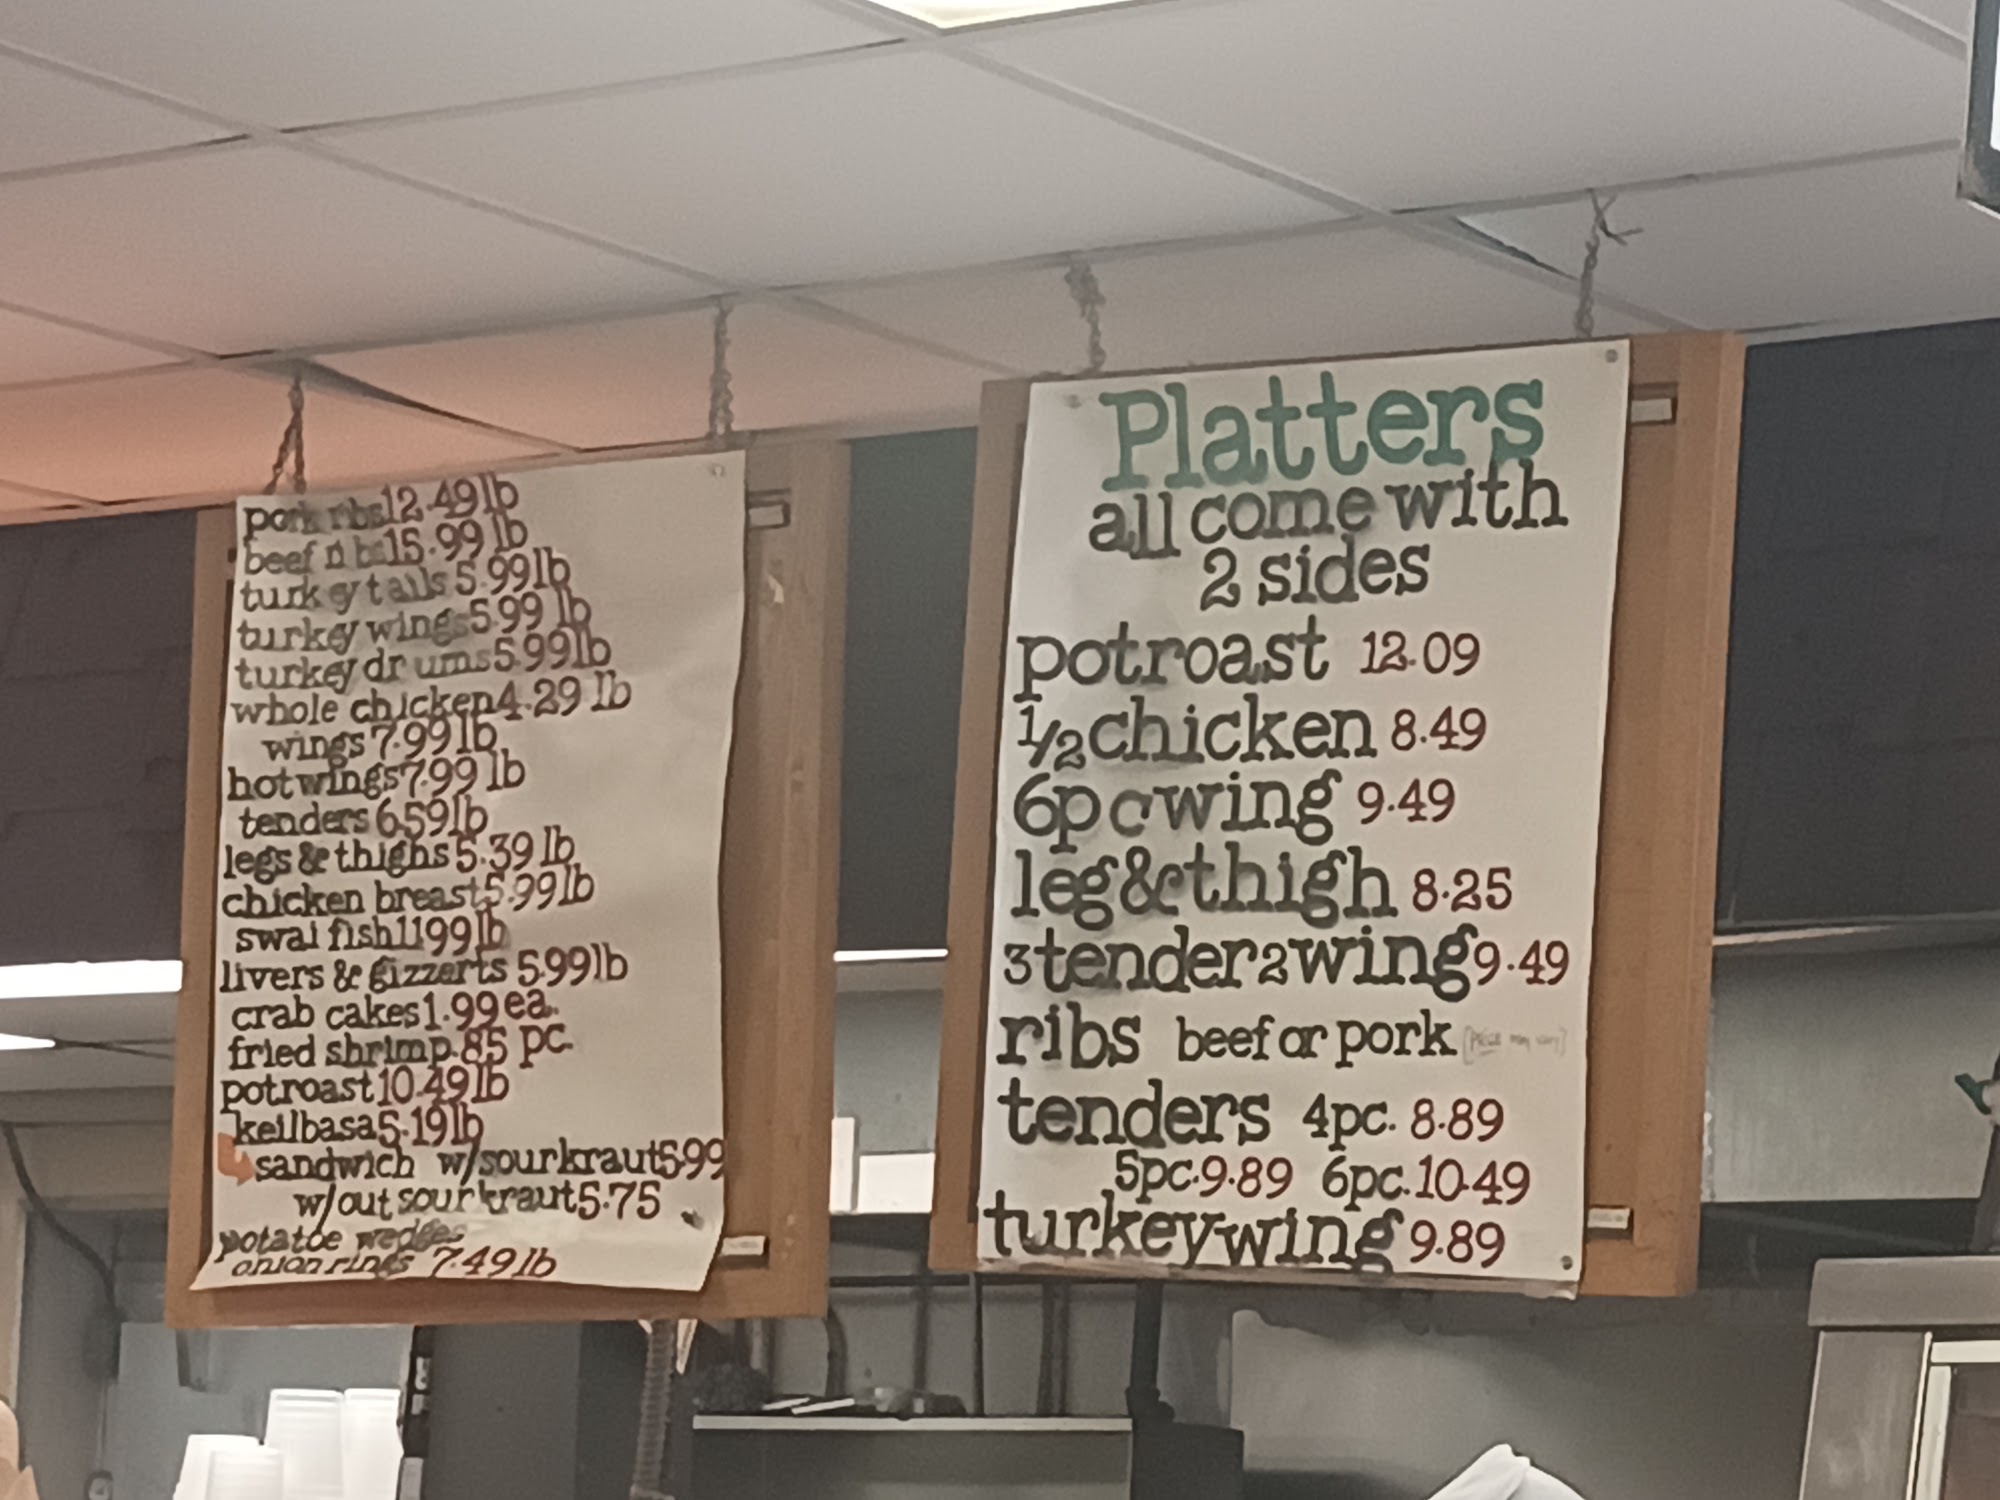 pork ribs 12.49 lb
beef ribs 15.99 lb
turkey tails 5.99 lb
turkey wings 5.99 lb
turkey drums 5.99 lb
whole chicken 4.29 lb
wings 7.99 lb
hot wings 7.99 lb
tenders 6.59 lb
legs & thighs 5.39 lb
chicken breast 5.99 lb
swai fish 11.99 lb
livers & gizzerts 5.99 lb
crab cakes 1.99 ea.
fried shrimp .85 pc.
potroast 10.49 lb
keilbasa 5.19 lb
sandwich w/sourkraut 5.99
w/out sourkraut 5.75
potatoe wedges
onion rings 7.49 lb
Platters
all come with
2 sides
potroast 12.09
1/2 chicken 8.49
6pc wing 9.49
leg & thigh 8.25
3 tender 2 wing 9.49
ribs beef or pork (price may vary)
tenders 4pc. 8.89
5pc. 9.89 6pc. 10.49
turkey wing 9.89